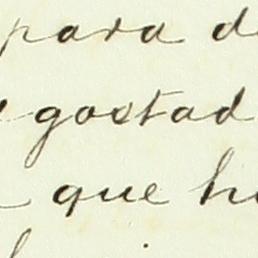 para d
gostad
que h